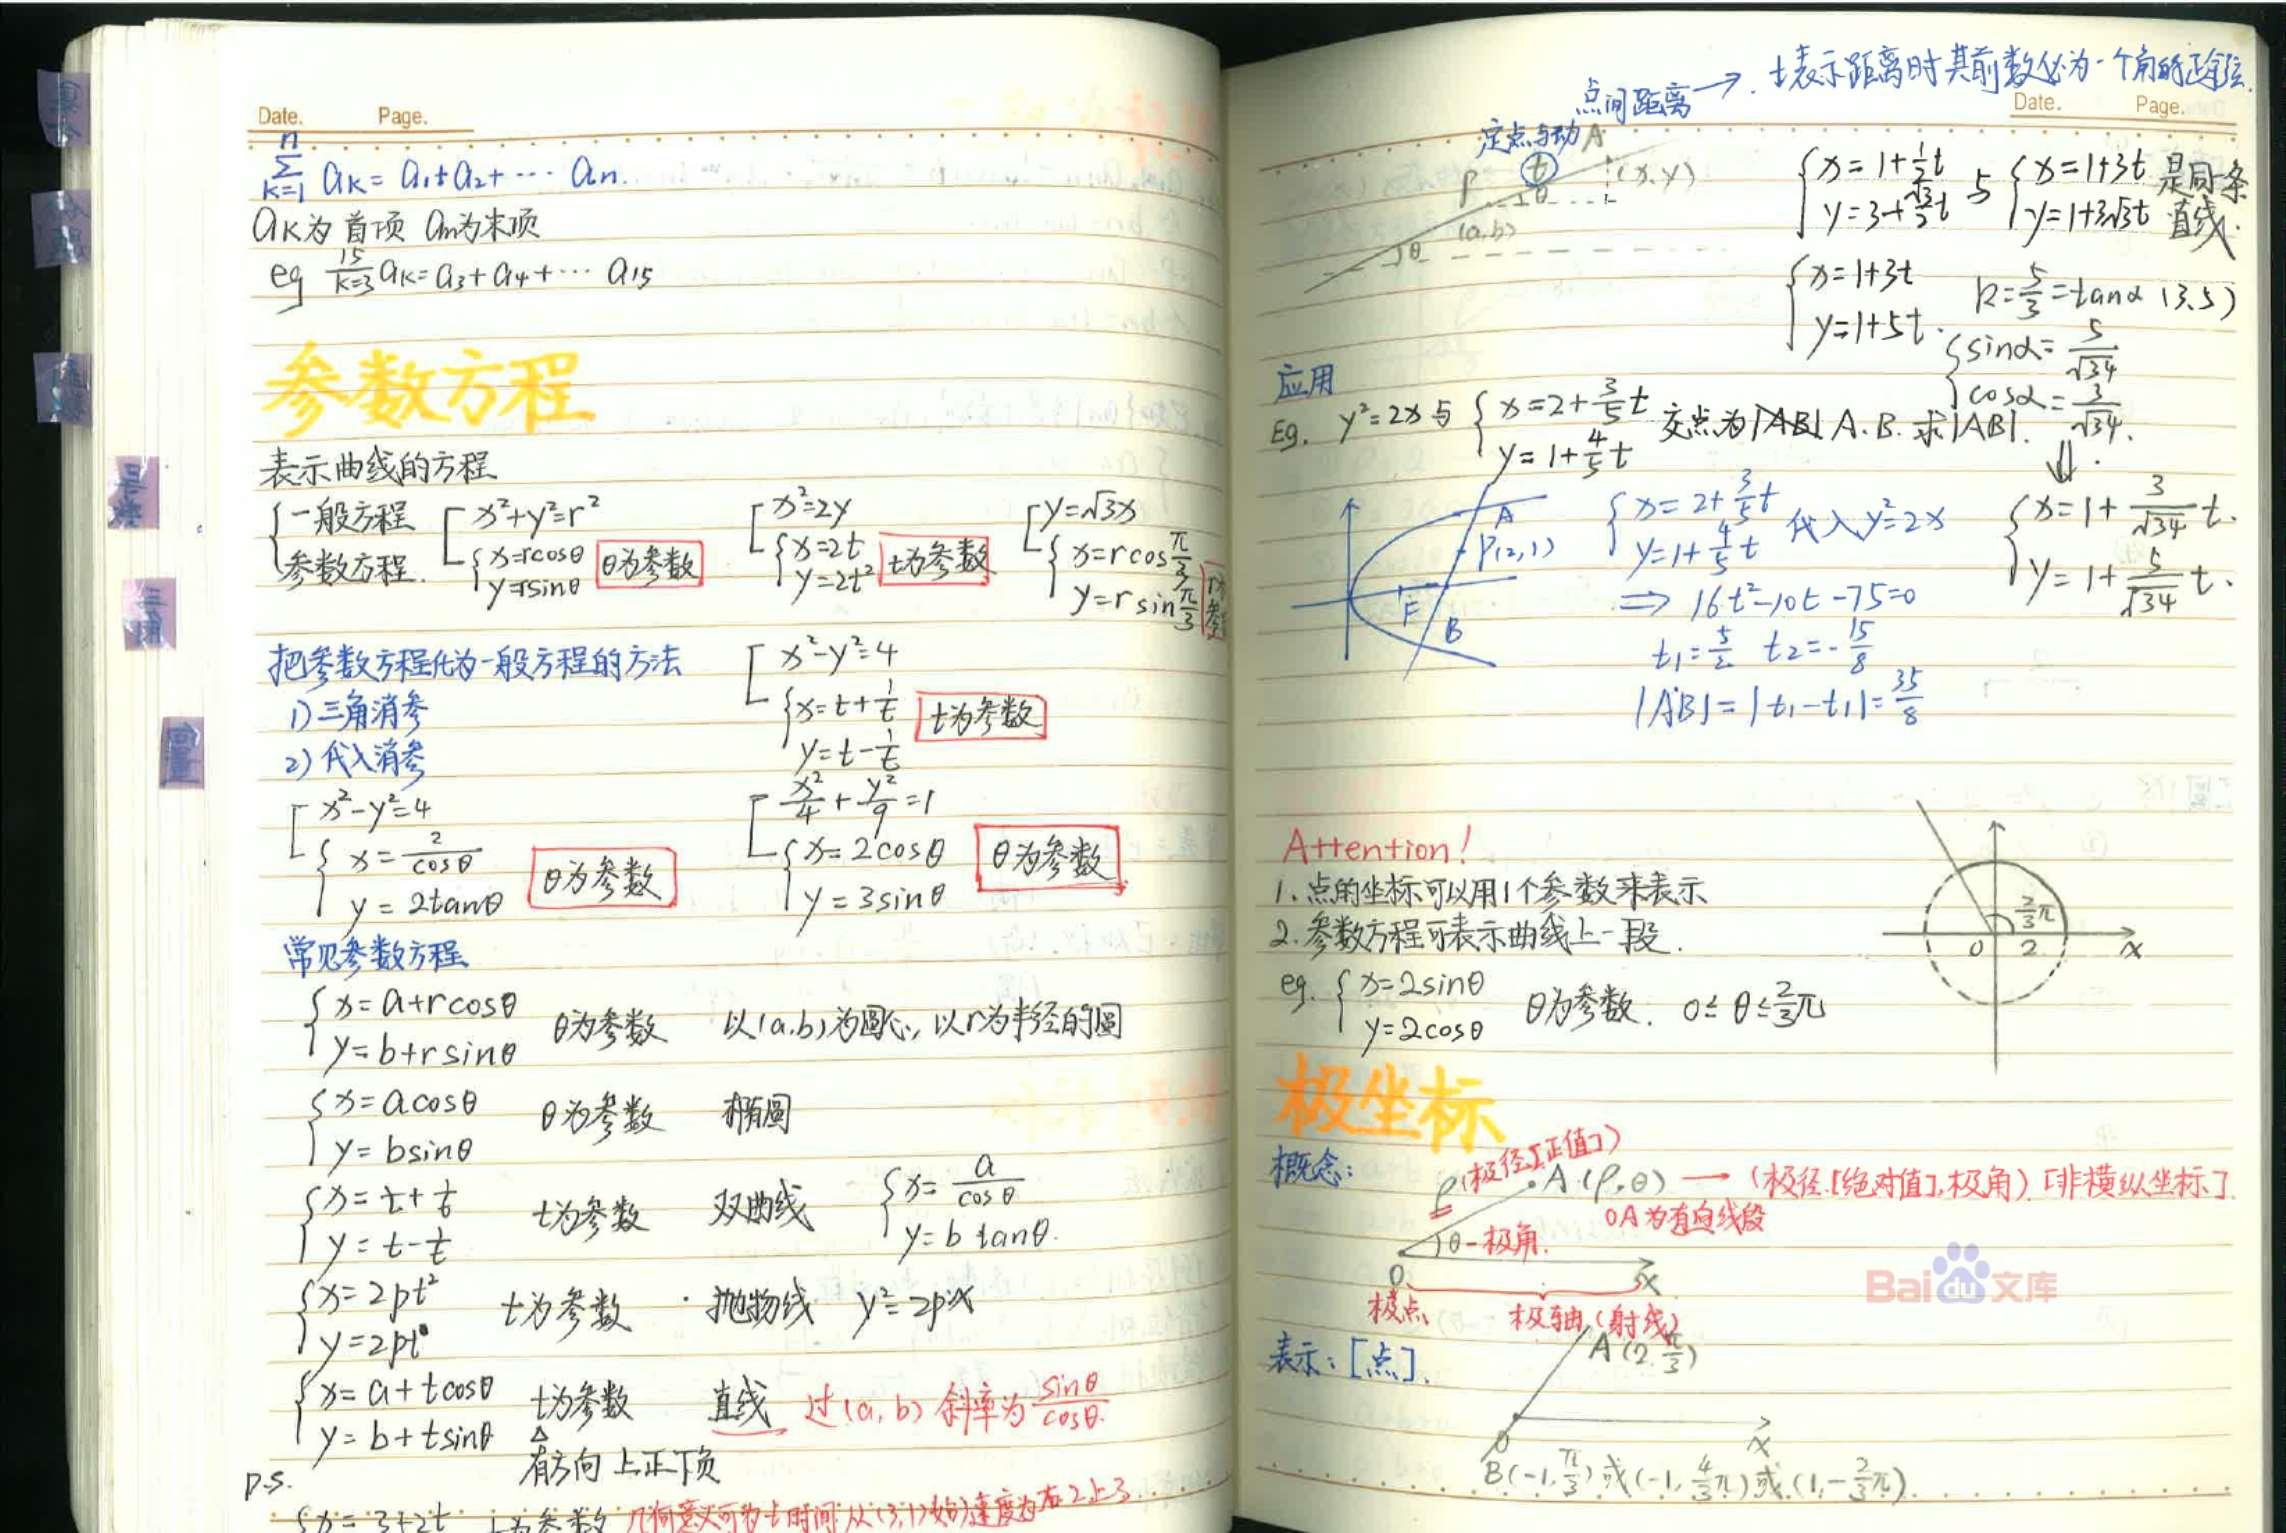 Date. Page.
n
∑ aₖ= a₁+a₂+⋯ aₙ.
k=1
aₖ为首项 aₙ为末项
eg 15 k=3 aₖ=a₃+a₄+⋯ a₁₅
参数方程
表示曲线的方程
{一般方程 [x²+y²=r² [x²=2y [y=√3x
参数方程. {x=rcosθ y=rsinθ θ为参数 {x=2t y=2t² t为参数 {x=rcosπ/3 y=rsinπ/3
把参数方程化为一般方程的方法
1)三角消参
2)代入消参
[x²-y²=4
{x=t+1/t y=t-1/t t为参数
[x²-y²=4
{x=2/cosθ y=2tanθ θ为参数
[x²/4+y²/9=1
{x=2cosθ y=3sinθ θ为参数
常见参数方程
{x=a+rcosθ y=b+rsinθ θ为参数 以(a.b)为圆心,以r为半径的圆
{x=acosθ y=bsinθ θ为参数 椭圆
{x=t+1/t y=t-1/t t为参数 双曲线 {x=a/cosθ y=b tanθ.
{x=2pt² y=2pt t为参数 · 抛物线 y²=2px
{x=a+tcosθ y=b+tsinθ t为参数 直线 过(a,b) 斜率为sinθ/cosθ.
有方向 上正下负
P.S.
{x=3+2t t为参数 几何意义可为t时间 从(3,1)始 速度为右2上3
点间距离→. t表示距离时其前数必为一个角的正余弦.
Date. Page.
定点与动A
t
P θ (x,y)
(a,b)
θ
{x=1+1/2t y=3+√3/2t 与 {x=1+3t y=1+3√3t 是同条直线.
{x=1+3t y=1+5t. k=5/3=tanα (3.5)
{sinα=5/√34 cosα=3/√34.
⇓.
{x=1+3/√34 t. y=1+5/√34 t.
应用
Eg. y²=2x与{x=2+3/5t y=1+4/5t 交点为 A.B. 求|AB|.
A
P(2,1)
F
B
{x=2+3/5t y=1+4/5t 代入y²=2x
⇒ 16t²-10t-75=0
t₁=5/2 t₂=-15/8
|AB|=|t₁-t₁|=35/8
Attention!
1.点的坐标可以用1个参数来表示
2.参数方程可表示曲线上一段.
eg. {x=2sinθ y=2cosθ θ为参数. 0≤θ≤2/3π
2/3π
0 2 x
极坐标
概念:
ρ(极径[正值])
A(ρ,θ) → (极径.[绝对值],极角).[非横纵坐标]
OA为有向线段
θ-极角.
O x
极点 极轴(射线)
表示:[点].
A(2.π/3)
O x
B(-1,π/3)或(-1,4/3π)或(1,-2/3π).
Baidu文库